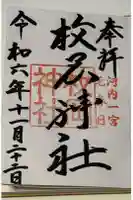 奉拝
河内一宮
元旧
枚岡神社
令和六年十一月二十三日